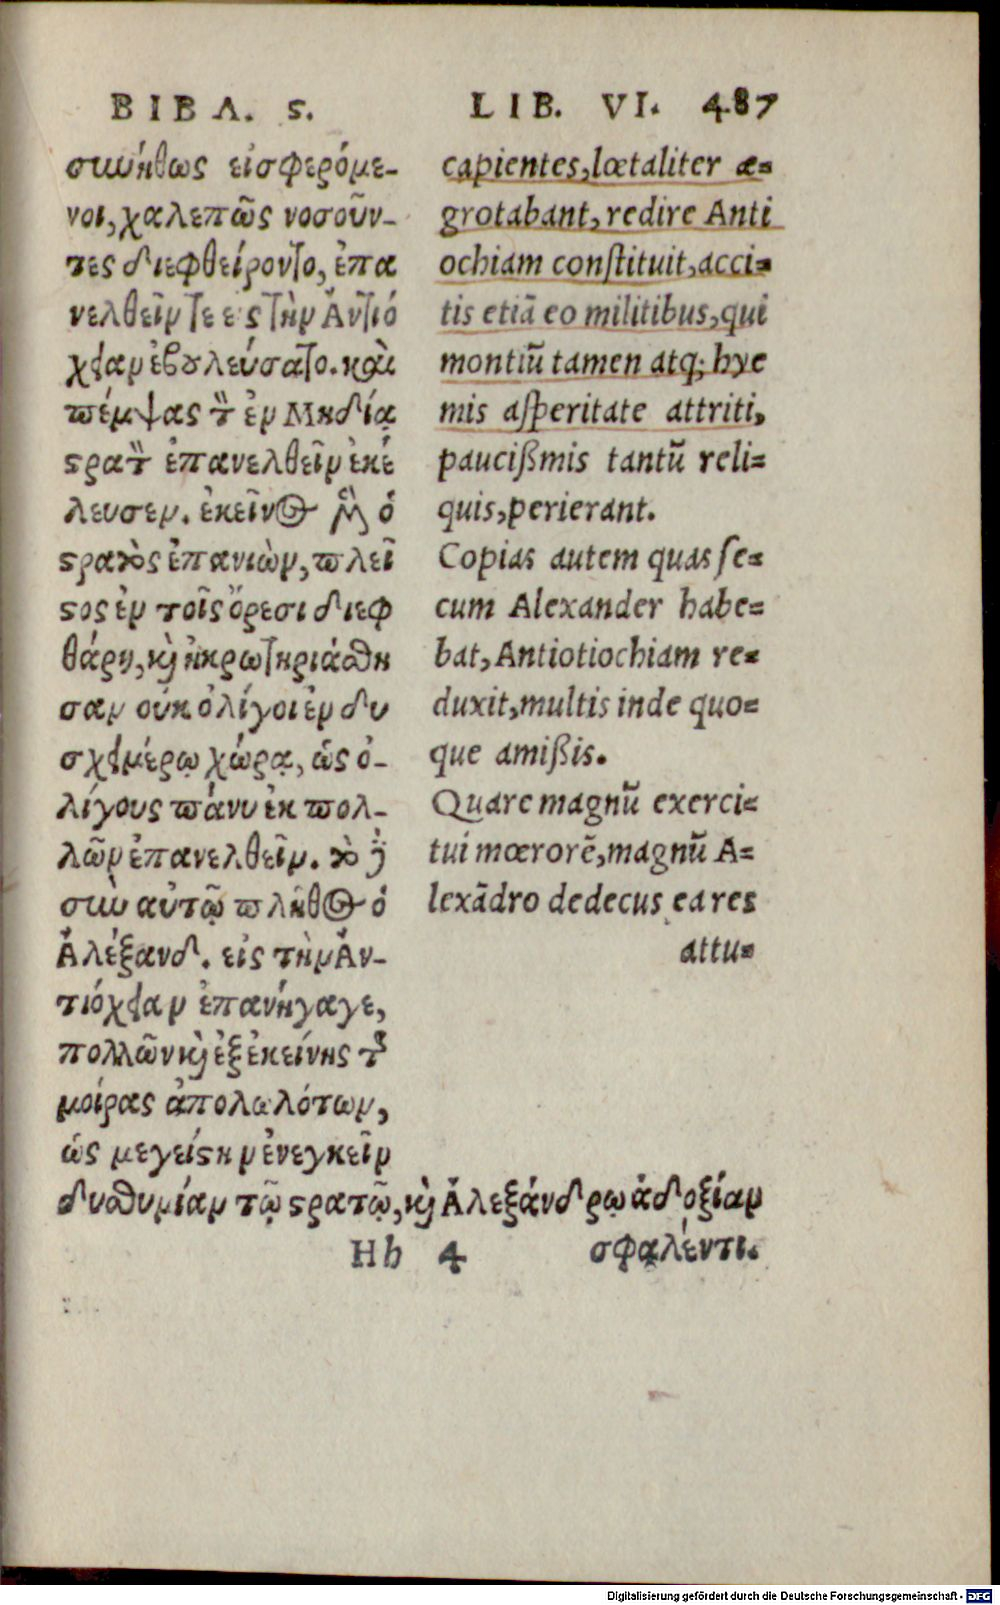 ΒΙΒΛ. ϛ.
συνήθως εἰσφερόμε-
νοι, χαλεπῶς νοσοῦν-
τες διεφθείροντο, ἐπα
νελθεῖν τε ες τὴν Ἀντιό
χειαν ἐβουλεύσατο. καὶ
πέμψας τὸν ἐν Μηδίᾳ
στρατὸν ἐπανελθεῖν ἐκέ
λευσεν. ἐκεῖνος μὲν ὁ
στρατὸς ἐπανιὼν, πλεῖ
στος ἐν τοῖς ὄρεσι διεφ
θάρη, καὶ ἠκρωτηριάσθη
σαν οὐκ ὀλίγοι ἐν δυ
σχειμέρῳ χώρᾳ, ὡς ὀ-
λίγους πάνυ ἐκ πολ-
λῶν ἐπανελθεῖν. τὸ δὲ
σὺν αὐτῷ πλῆθος ὁ
Ἀλέξανδ. εἰς τὴν Ἀν-
τιόχειαν ἐπανήγαγε,
πολλῶν καὶ ἐξ ἐκείνης τῆς
μοίρας ἀπολωλότων,
ὡς μεγείστην ἐνεγκεῖν
δυσθυμίαν τῷ στρατῷ, καὶ Ἀλεξάνδρῳ ἀδοξίαν
Hh 4 σφαλέντι.
LIB. VI. 487
capientes, lœtaliter æ=
grotabant, redire Anti
ochiam constituit, acci=
tis etiã eo militibus, qui
montiũ tamen atq; hye
mis asperitate attriti,
paucißmis tantũ reli=
quis, perierant.
Copias autem quas se=
cum Alexander habe=
bat, Antiotiochiam re=
duxit, multis inde quo=
que amißis.
Quare magnũ exerci=
tui mœrorẽ, magnũ A=
lexãdro dedecus ea res
attu=
Digitalisierung gefördert durch die Deutsche Forschungsgemeinschaft - DFG